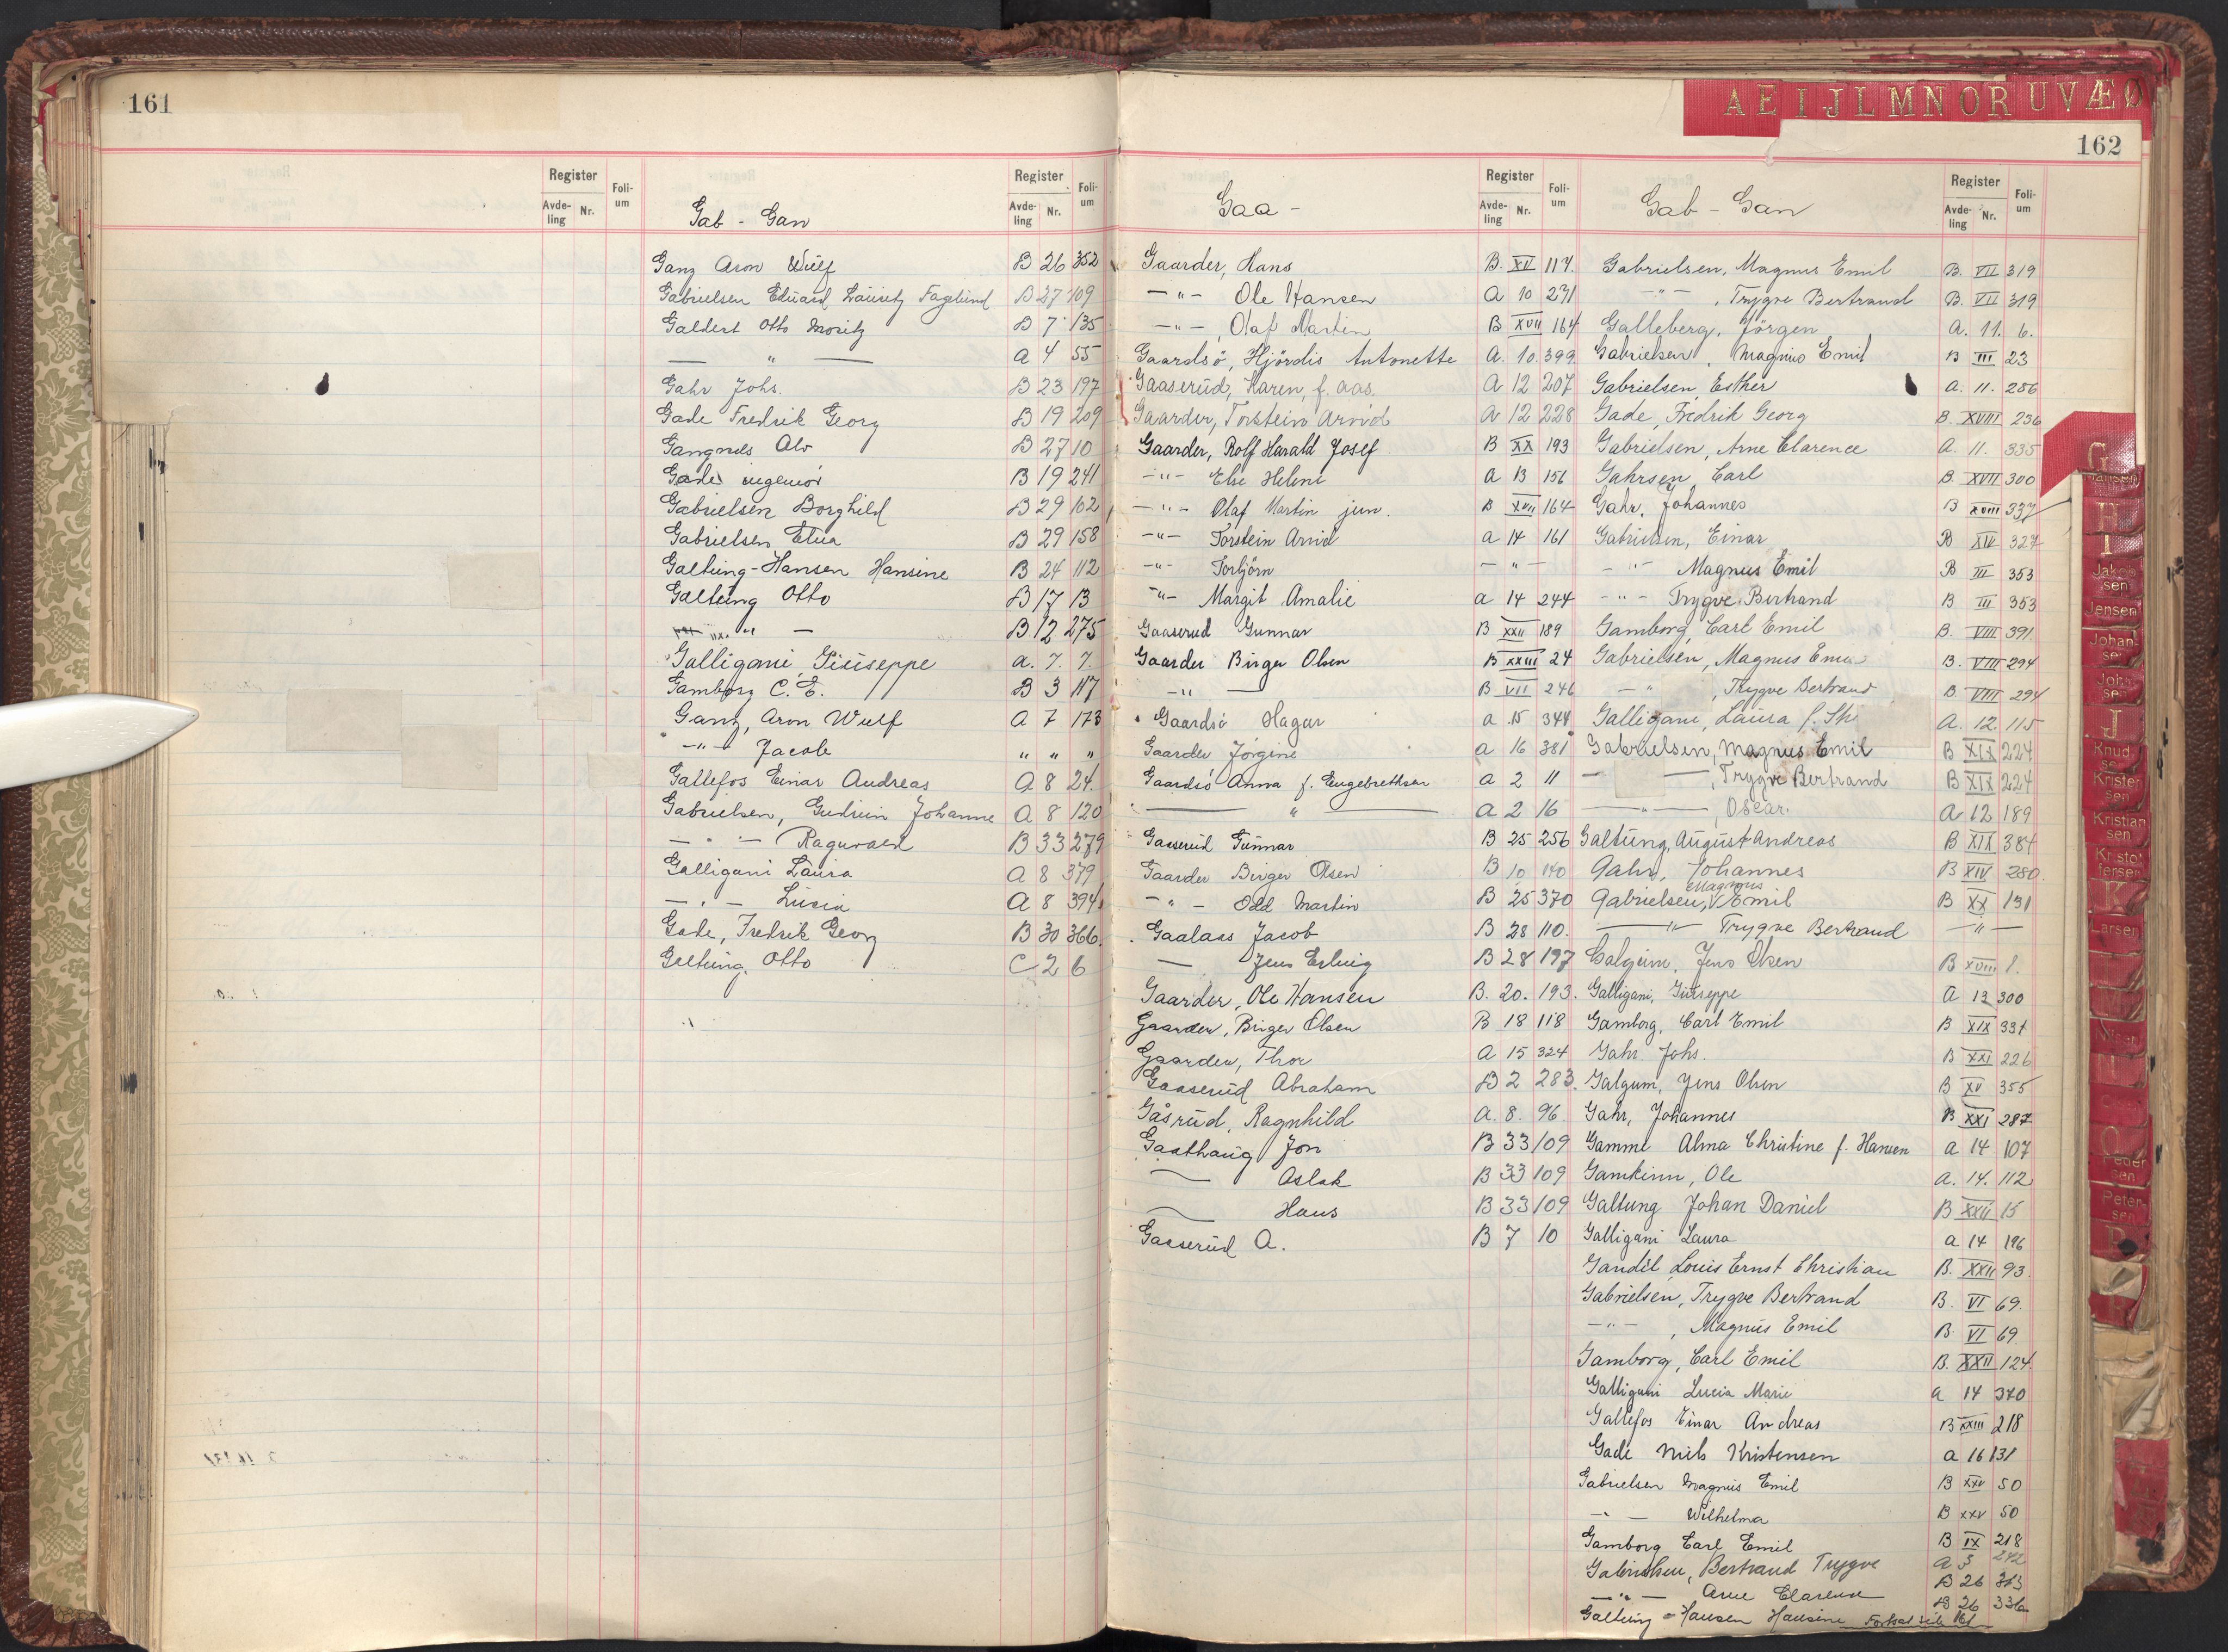 161
Register
Avde-ling Nr.
Foli-um
Gab - Gan
Register
Avde-ling Nr.
Foli-um
Ganz Aron Wulf B 26 352
Gabrielsen Eduard Lauritz Fagelund B 27 109
Galdert Otto Moritz B 7 135
— " — a 4 55
Gahr Johs. B 23 197
Gade Fredrik Georg B 19 209
Gangnæs Alv B 27 10
Gade ingeniör B 19 241
Gabrielsen Borghild B 29 102
Gabrielsen B 29 158
Galtung-Hansen Hansine B 24 112
Galtung Otto B 17 13
" — B 12 275
Galligani, Giuseppe a. 7. 7.
Gamborg C. E. B 3 117
Ganz, Aron Wulf a 7 173
—"— Jacob " " "
Gallefos Einar Andreas a 8 24.
Gabrielsen, Gudrun Johanne a 8 120
— " — Ragnvald B 33 279
Galligani Laura a 8 379
— " — Lucia a 8 394
Gade, Fredrik Georg B 30 366.
Galtung, Otto C 2 6
162
A E I J L M N O R U V Æ Ø
Gaa -
Register
Avde-ling Nr.
Foli-um
Gaarder, Hans B. XV 114.
—"— Ole Hansen a 10 231
—"—, Olaf Martin B XVII 164
Gaardsö, Hjördis Antonette a. 10. 399
Gaaserud, Karen, f. Aas. a 12 207
Gaarder, Torstein Arvid a 12 228
Gaarder, Rolf Harald Josef B XX 193
—"— Else Helene a 13 156
—"— Olaf Martin jun. B XVII 164
—"— Torstein Arvid a 14 161
—"— Torbjörn — " —
—"— Margit Amalie a 14 244
Gaaserud Gunnar B XXII 189
Gaarder Birger Olsen B XXIII 24
—"— B VII 246
Gaardsö Hagar a 15 344
Gaarder Jörgine a 16 381
Gaardsö Anna f. Engebrethsen a 2 11
— " — a 2 16
Gaaserud Gunnar B 25 256
Gaarder Birger Olsen B 10 140
—"— Odd Martin B 25 370
Gaalaas Jacob B 28 110.
— Jens Erling B 28 197
Gaarder, Ole Hansen B. 20. 193.
Gaarder, Birger Olsen B 18 118
Gaarder, Thor a 15 324
Gaaserud Abraham B 2 283.
Gåsrud, Ragnhild a. 8. 96
Gaathaug Jon B 33 109
— Aslak B 33 109
— Hans B 33 109
Gaaserud A. B 7 10
Gab - Gan
Register
Avde-ling Nr.
Foli-um
Gabrielsen, Magnus Emil B. VII 319
—"—, Trygve Bertrand B. VII 319
Galleberg, Jörgen a. 11. 6.
Gabrielsen, Magnus Emil B III 23
Gabrielsen, Esther a. 11. 256
Gade, Fredrik Georg B. XVIII 236
Gabrielsen, Arne Clarence a. 11. 335
Gahrsen, Carl B. XVII 300
Gahr, Johannes B XVIII 337
Gabrielsen, Einar B XIV 327
—"— Magnus Emil B III 353
—"— Trygve Bertrand B III 353
Gamborg, Carl Emil B. VIII 391
Gabrielsen, Magnus Emil B. VIII 294
—"—, Trygve Bertrand B. VIII 294
Galligani, Laura f. a. 12. 115
Gabrielsen, Magnus Emil B XIX 224
— —, Trygve Bertrand B XIX 224
—"—, Oscar. a 12 189
Galtung, August Andreas B XIX 384
Gahr, Johannes B XIV 280.
Gabrielsen, Magnus Emil B XX 131
—"— Trygve Bertrand —"—
Galgum, Jens Olsen B XVIII 1.
Galligani, Giuseppe a 13 300
Gamborg, Carl Emil B XIX 331
Gahr Johs. B XXI 226
Galgum, Jens Olsen B XV 355
Gahr, Johannes B XXI 287
Gamme Alma Christine f. Hansen a 14 107
Gamkinn, Ole a. 14. 112
Galtung Johan Daniel B XXII 15
Galligani Laura a 14 196
Gandil, Louis Ernst Christian B. XXII 93.
Gabrielsen, Trygve Bertrand B. VI 69.
—"—, Magnus Emil B. VI 69
Gamborg, Carl Emil B. XXII 124.
Galligani Lucia Marie a 14 370
Gallefos Einar Andreas B XXIII 218
Gade Niels Kristensen a 16 131
Gabrielsen Magnus Emil B XXV 50
—"— Wilhelma B XXV 50
Gamborg Carl Emil B IX 218
Gabrielsen, Bertrand Trygve a 3 242
—"— Arne Clarence B 26 313
Galtung - Hansen Hansine B 26 336
Fortsat side 161
G
Hansen
H
I
Jakobsen
Jensen
Johansen
Johnsen
J
Knudsen
Kristensen
Kristiansen
Kristoffersen
K
Larsen
L
M
Nilsen
O
Pedersen
Petersen
R